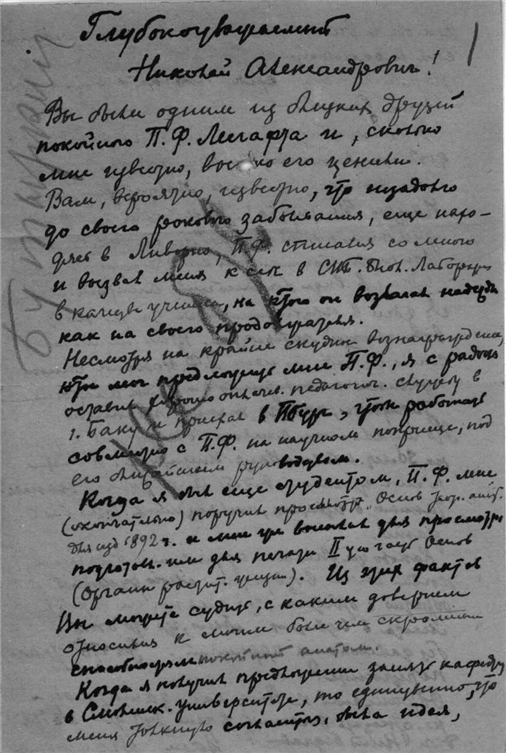 Глубокоуважаемый
Николай Александрович!
Вы были одним из близких друзей
покойного П.Ф. Лесгафта и, сколько
мне известно, высоко его ценили.
Вам, вероятно, известно, что незадолго
до своего рокового заболевания, еще нахо-
дясь в П.Ф. списался со мною
и вызвал меня к себе в СПб. Биол. Лаборат
в качестве ученика, на котор он возлагал надежды
как на своего продолжателя.
Несмотря на крайне скудное вознаграждение,
котор мог предложить мне П.Ф., я с радость
оставил хорошо оплач. педагогич. службу в
г. Баку и приехал в Пбург, чтобы работать
совместно с П.Ф. на научном поприще, под
его ближайшим руководством.
Когда я был еще студентом, П.Ф. мне
(окончательно) поручил просмотр Основ теор. анат.
для изд 1892 г. и мне же для просмотра
подготов. им для печати II ую часть Основ
(Органы растит. ). Из этих фактов
Вы можете судить, с каким доверием
относился к моим более чем скромным
способностям покойный анатом.
Когда я получил предложение занять кафедру
в Смоленск. университете, то единственно, что
меня толкнуло согласиться, была идея,